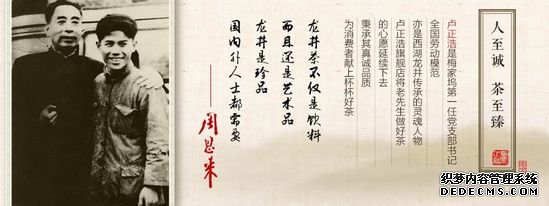 人至诚 茶至臻
卢正浩是梅家坞第一任党支部书记
全国劳动模范
亦是西湖龙井传承的灵魂人物
卢正浩旗舰店将老先生做好茶
的心愿延续下去
秉承其真诚品质
为消费者献上杯杯好茶
龙井茶不仅是饮料
而且还是艺术品
龙井是珍品
国内外人士都需要
——周恩来
织梦内容管理系统
DEDECMS.COM